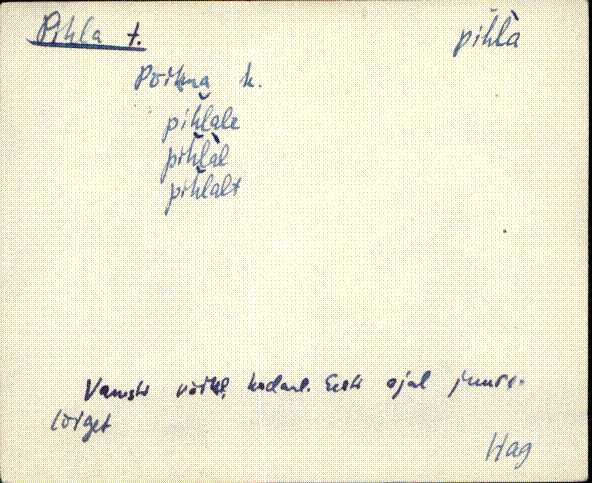 Pihla t.
pih̆là
Põikma k.
pih̆lale
pih̆làl
pih̆lalt
Vanasti väike, kodanl. Eesti ajal juure-
lõiget
Hag